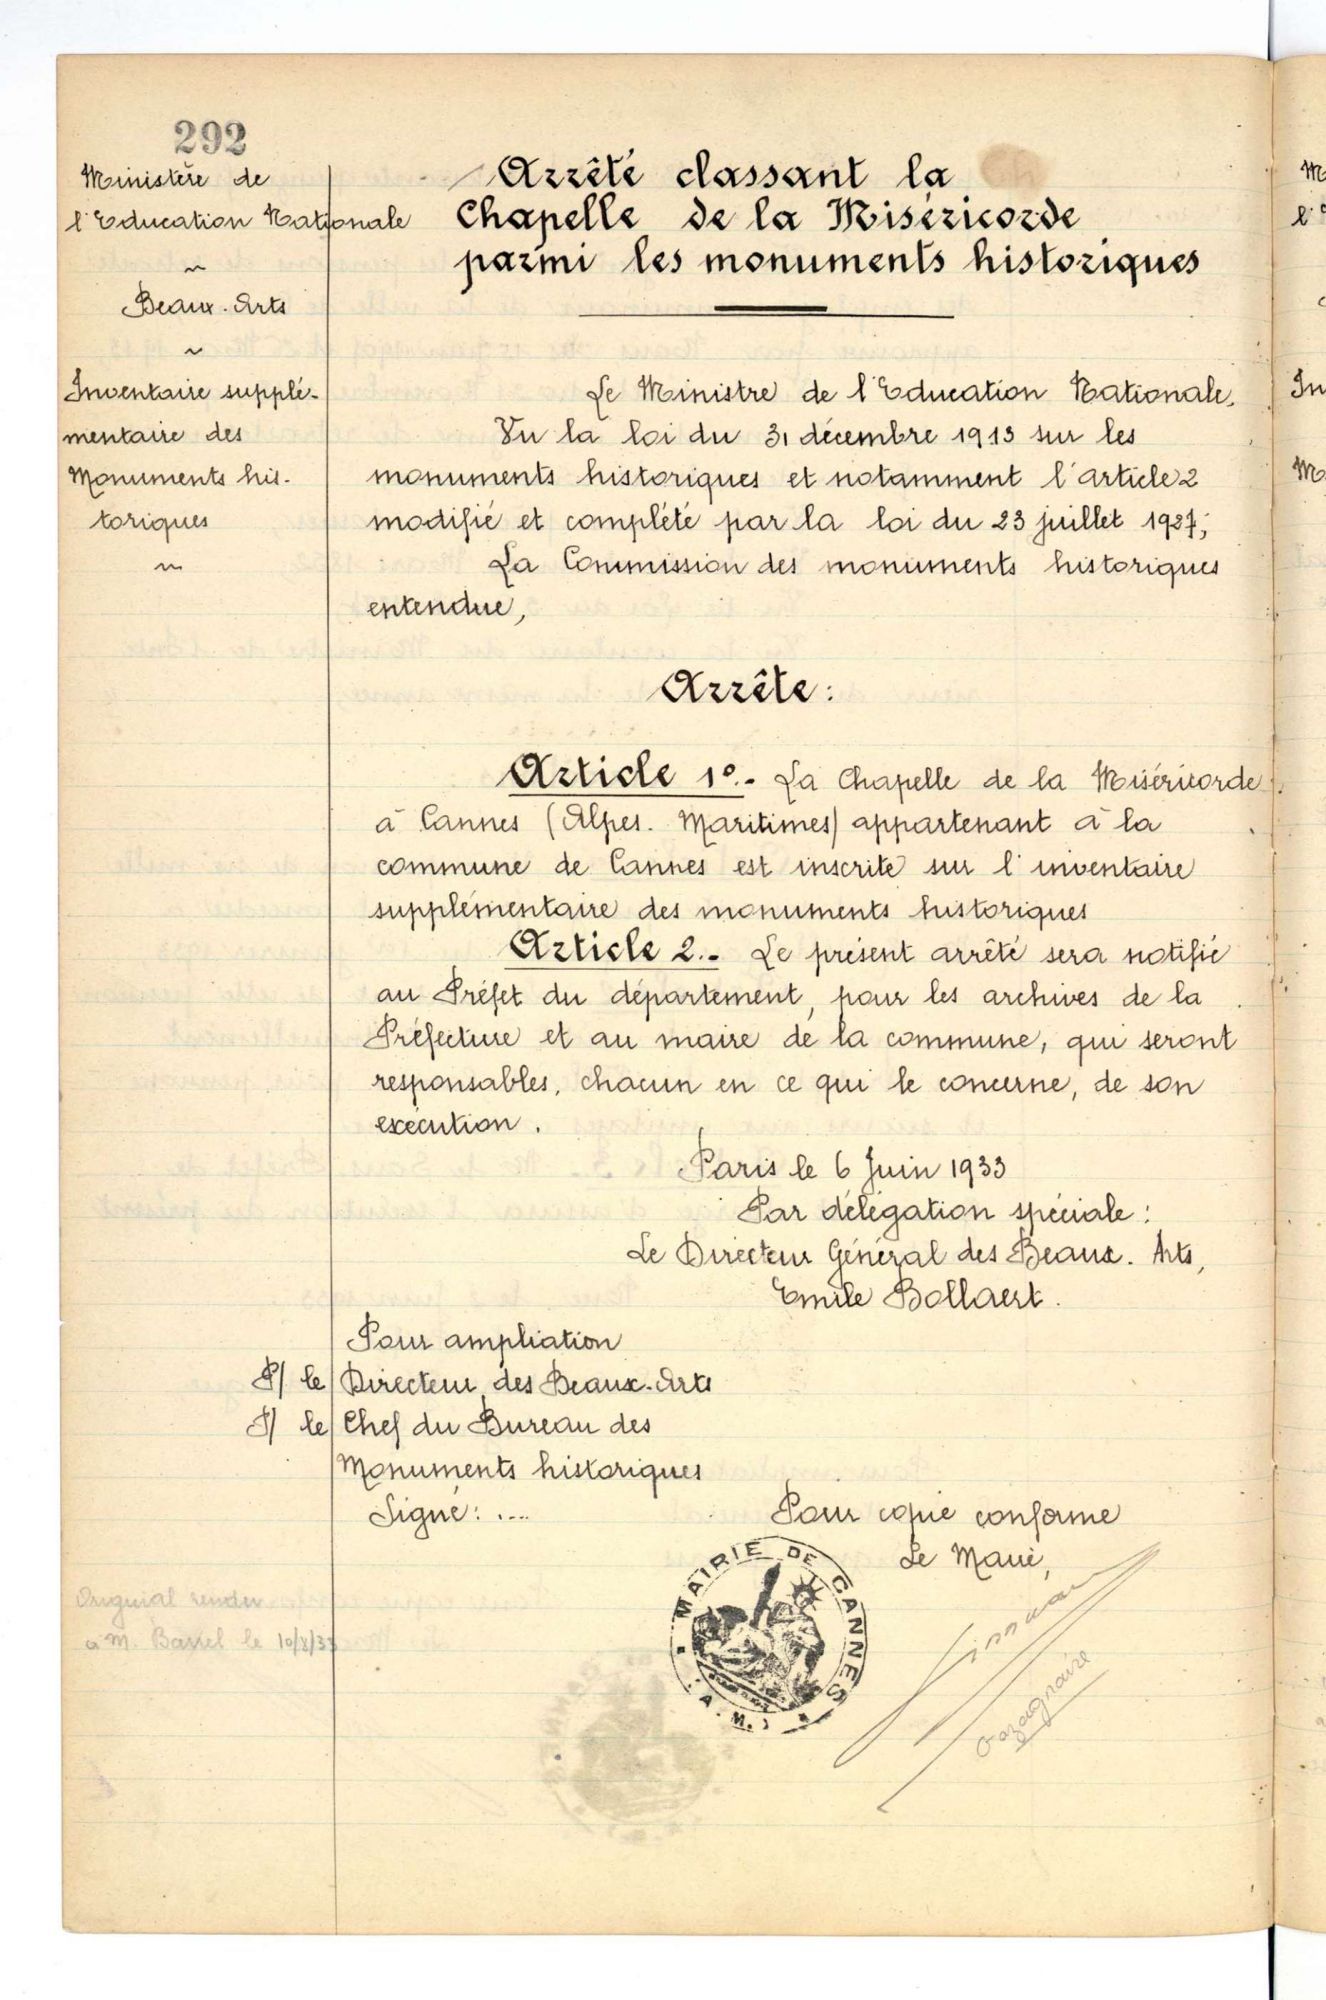 292
Ministère de
l'Education Nationale
~
Beaux-Arts
~
Inventaire supplé-
mentaire des
Monuments his-
toriques
~
Arrêté classant la
Chapelle de la Miséricorde
parmi les monuments historiques
Le Ministre de l'Education Nationale,
Vu la loi du 31 décembre 1913 sur les
monuments historiques et notamment l'article 2
modifié et complété par la loi du 23 juillet 1927;
La Commission des monuments historiques
entendue,
Arrête:
Article 1º.- La Chapelle de la Miséricorde
à Cannes (Alpes-Maritimes) appartenant à la
commune de Cannes est inscrite sur l'inventaire
supplémentaire des monuments historiques
Article 2.- Le présent arrêté sera notifié
au Préfet du département, pour les archives de la
Préfecture et au maire de la commune, qui seront
responsables, chacun en ce qui le concerne, de son
exécution.
Paris le 6 Juin 1933
Par délégation spéciale:
Le Directeur Général des Beaux-Arts,
Emile Bollaert.
Pour ampliation
P/ le Directeur des Beaux-Arts
P/ le Chef du Bureau des
Monuments historiques
Signé: ....
Pour copie conforme
Le Maire,
MAIRIE DE CANNES
(A.M.)
Original rendu
à M. le 10/8/33
Gazagnaire